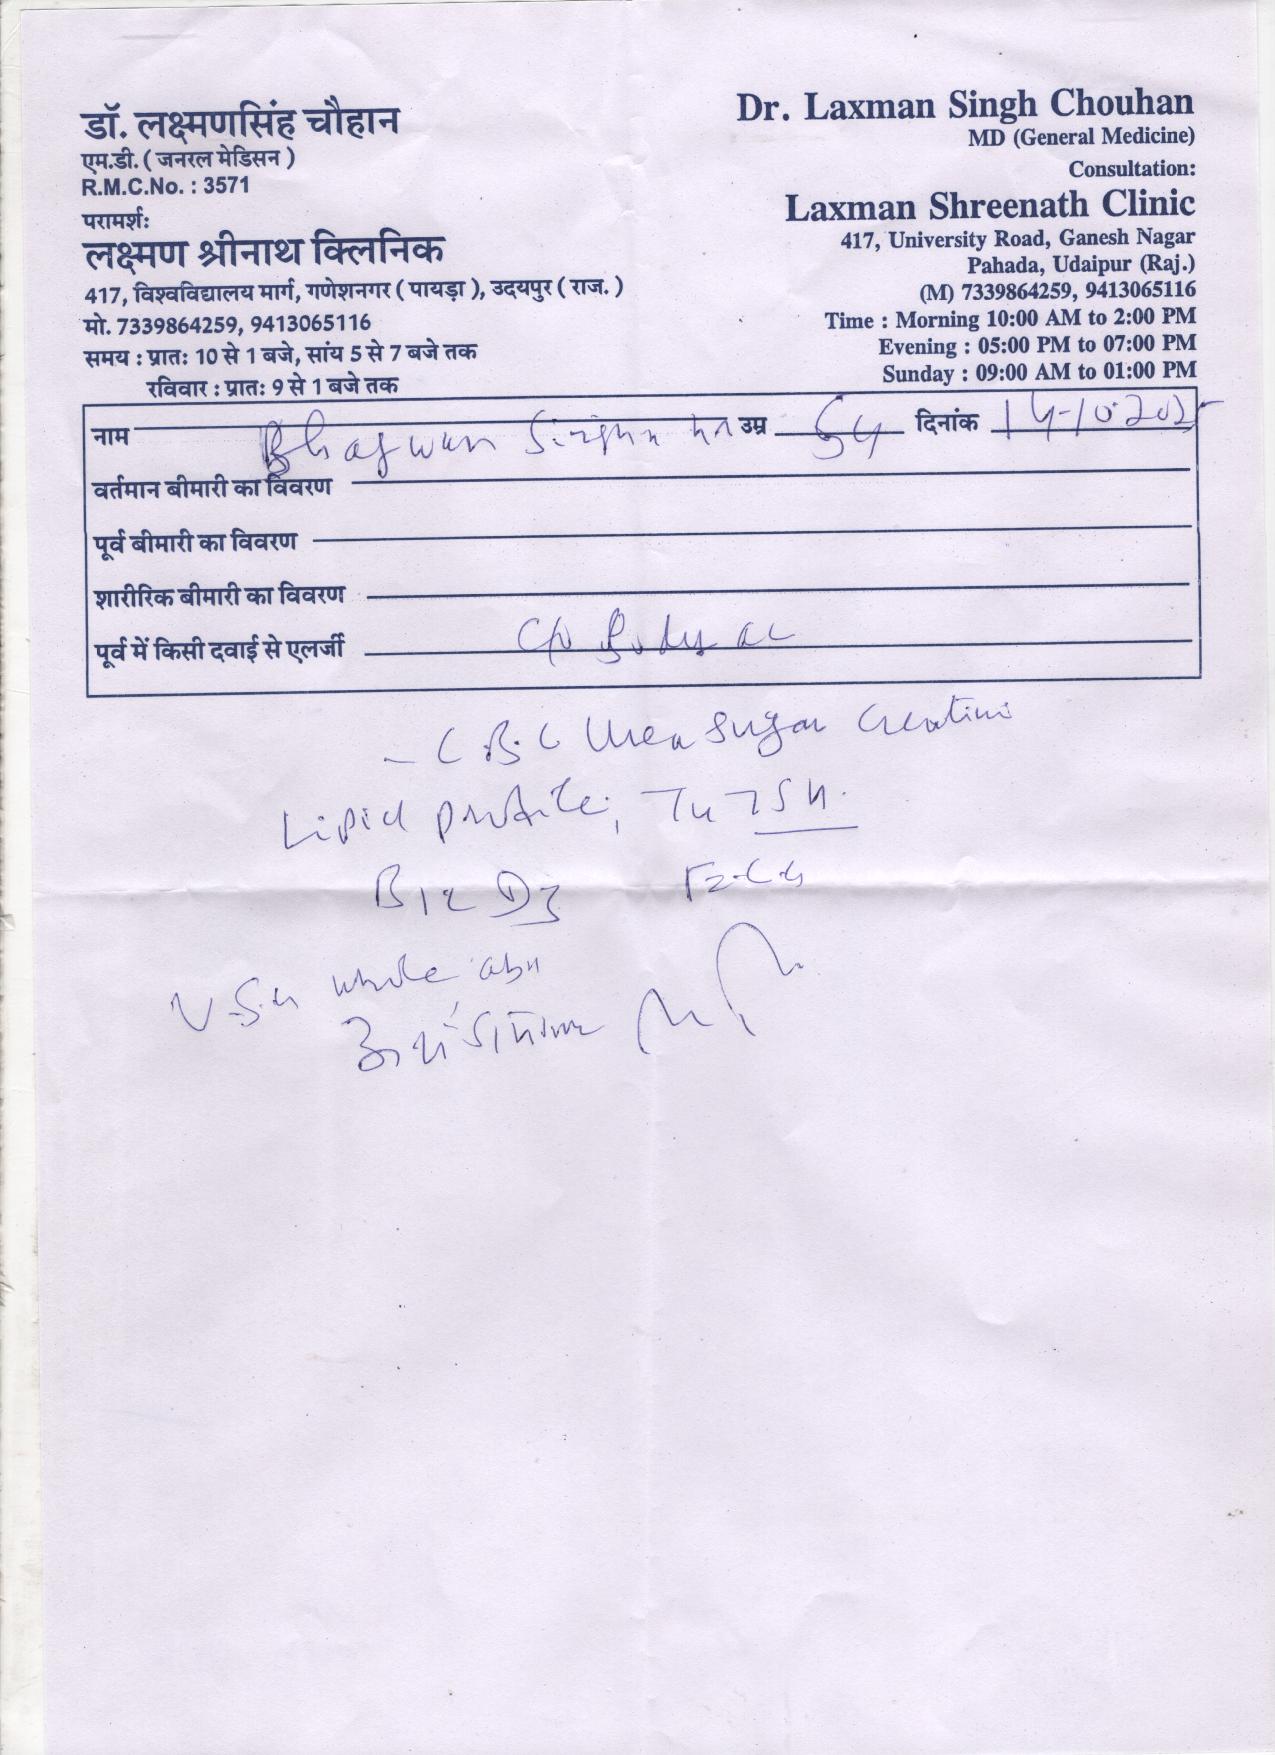 डॉ. लक्ष्मणसिंह चौहान
एम.डी. ( जनरल मेडिसन )
R.M.C.No. : 3571
परामर्श:
लक्ष्मण श्रीनाथ क्लिनिक
417, विश्वविद्यालय मार्ग, गणेशनगर ( पायड़ा ), उदयपुर ( राज. )
मो. 7339864259, 9413065116
समय : प्रातः 10 से 1 बजे, सांय 5 से 7 बजे तक
रविवार : प्रातः 9 से 1 बजे तक
Dr. Laxman Singh Chouhan
MD (General Medicine)
Consultation:
Laxman Shreenath Clinic
417, University Road, Ganesh Nagar
Pahada, Udaipur (Raj.)
(M) 7339864259, 9413065116
Time : Morning 10:00 AM to 2:00 PM
Evening : 05:00 PM to 07:00 PM
Sunday : 09:00 AM to 01:00 PM
नाम Bhagwan उम्र 54 दिनांक 14-10-2025
वर्तमान बीमारी का विवरण
पूर्व बीमारी का विवरण
शारीरिक बीमारी का विवरण
पूर्व में किसी दवाई से एलर्जी C/o Body
- C.B.C Urea Sugar Creatinine
Lipid profile, TSH.
B12 D3
whole